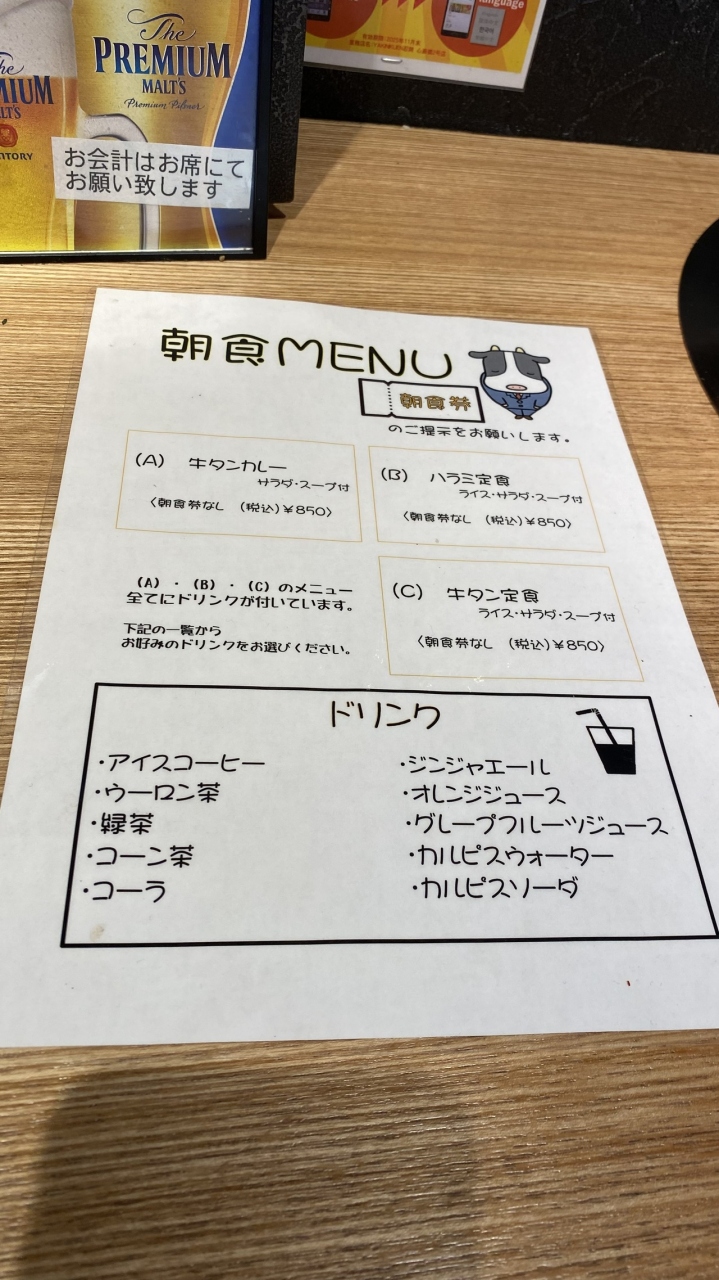 The
PREMIUM
MALT'S
Premium Pilsner
お会計はお席にて
お願い致します
language
朝食MENU
朝食券
のご提示をお願いします。
(A) 牛タンカレー
サラダ・スープ付
〈朝食券なし (税込)¥850〉
(B) ハラミ定食
ライス・サラダ・スープ付
〈朝食券なし (税込)¥850〉
(A)・(B)・(C)のメニュー
全てにドリンクが付いています。
下記の一覧から
お好みのドリンクをお選びください。
(C) 牛タン定食
ライス・サラダ・スープ付
〈朝食券なし (税込)¥850〉
ドリンク
・アイスコーヒー
・ウーロン茶
・緑茶
・コーン茶
・コーラ
・ジンジャエール
・オレンジジュース
・グレープフルーツジュース
・カルピスウォーター
・カルピスソーダ